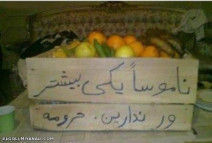 ناموساً یکی بیشتر
ور ندارین. حرومه